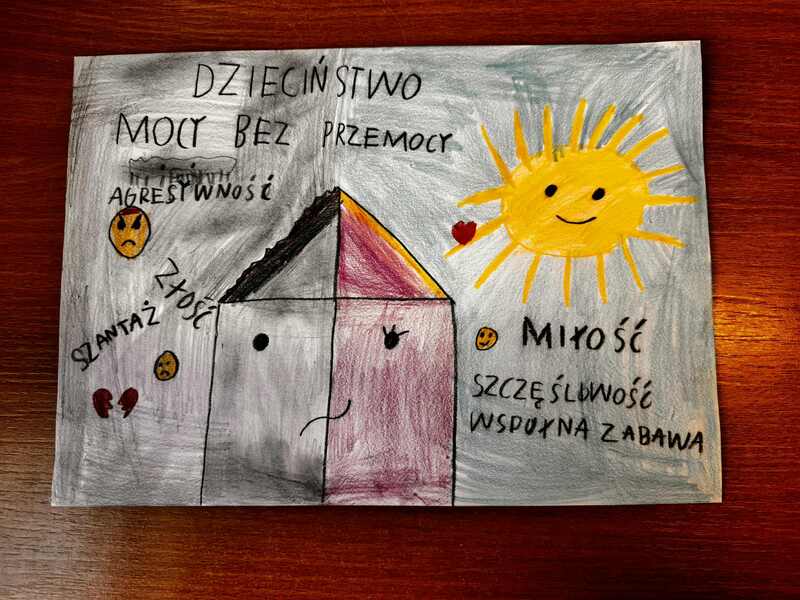 DZIECIŃSTWO
MOCY BEZ PRZEMOCY
AGRESYWNOŚĆ
ZŁOŚĆ
SZANTAŻ
MIŁOŚĆ
SZCZĘŚLIWOŚĆ
WSPUŁNA ZABAWA